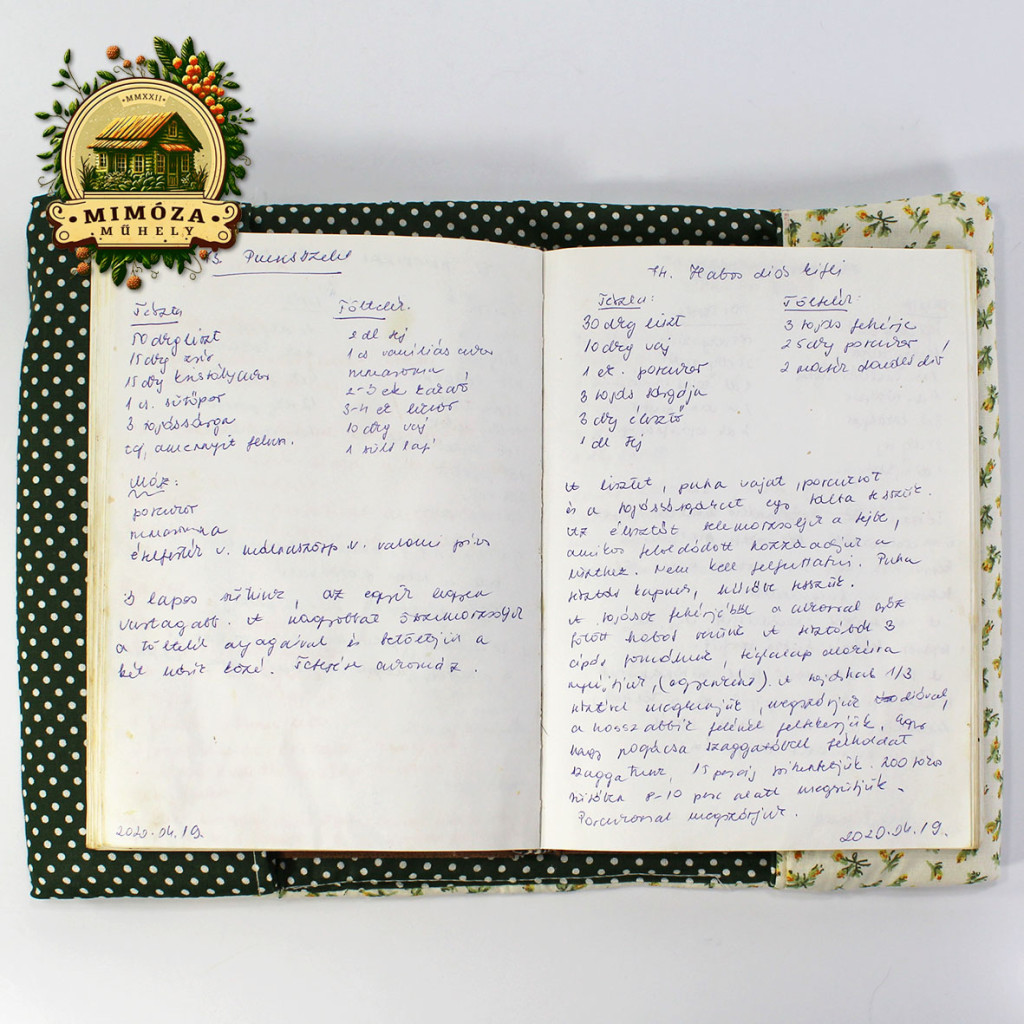 ·MMXXII·
MIMÓZA
MŰHELY
3. Puncsszelet
Tészta
50 dkg liszt
15 dkg zsír
15 dkg kristálycukor
1 cs. sütőpor
3 tojássárga
tej, amennyit felvesz.
Töltelék:
2 dl tej
1 cs vaníliás cukor
rumaroma
2-3 ek kakaó
3-4 ek cukor
10 dkg vaj
1 sült lap
Máz:
porcukor
rumaroma
ételfesték v. málnaszörp v. valami piros
3 lapos sütünk, az egyik legyen
vastagabb. A nagyobbat összemorzsoljuk
a töltelék anyagával és betöltjük a
két másik közé. Tetejére cukormáz.
2020.04.19.
14. Habos diós kifli
Tészta:
30 dkg liszt
10 dkg vaj
1 ek. porcukor
3 tojás sárgája
3 dkg élesztő
1 dl tej
Töltelék:
3 tojás fehérje
25 dkg porcukor
2 marék darált dió
A lisztet, puha vajat, porcukrot
és a tojássárgákat egy tálba tesszük.
Az élesztőt belemorzsoljuk a tejbe,
amikor feloldódott hozzáadjuk a
liszthez. Nem kell felfuttatni. Puha
tésztát kapunk, hűtőbe tesszük.
A tojások fehérjéből a cukorral gőz
fölött habot verünk. A tésztából 3
cipót formálunk, téglalap alakúra
nyújtjuk, (egyenként). A tojáshab 1/3
részével megkenjük, megszórjuk dióval,
a hosszabbik felénél feltekerjük. Egy
nagy pogácsa szaggatóval félholdat
szaggatunk, 15 percig pihentetjük. 200 fokos
sütőben 8-10 perc alatt megsütjük.
Porcukorral megszórjuk.
2020.04.19.